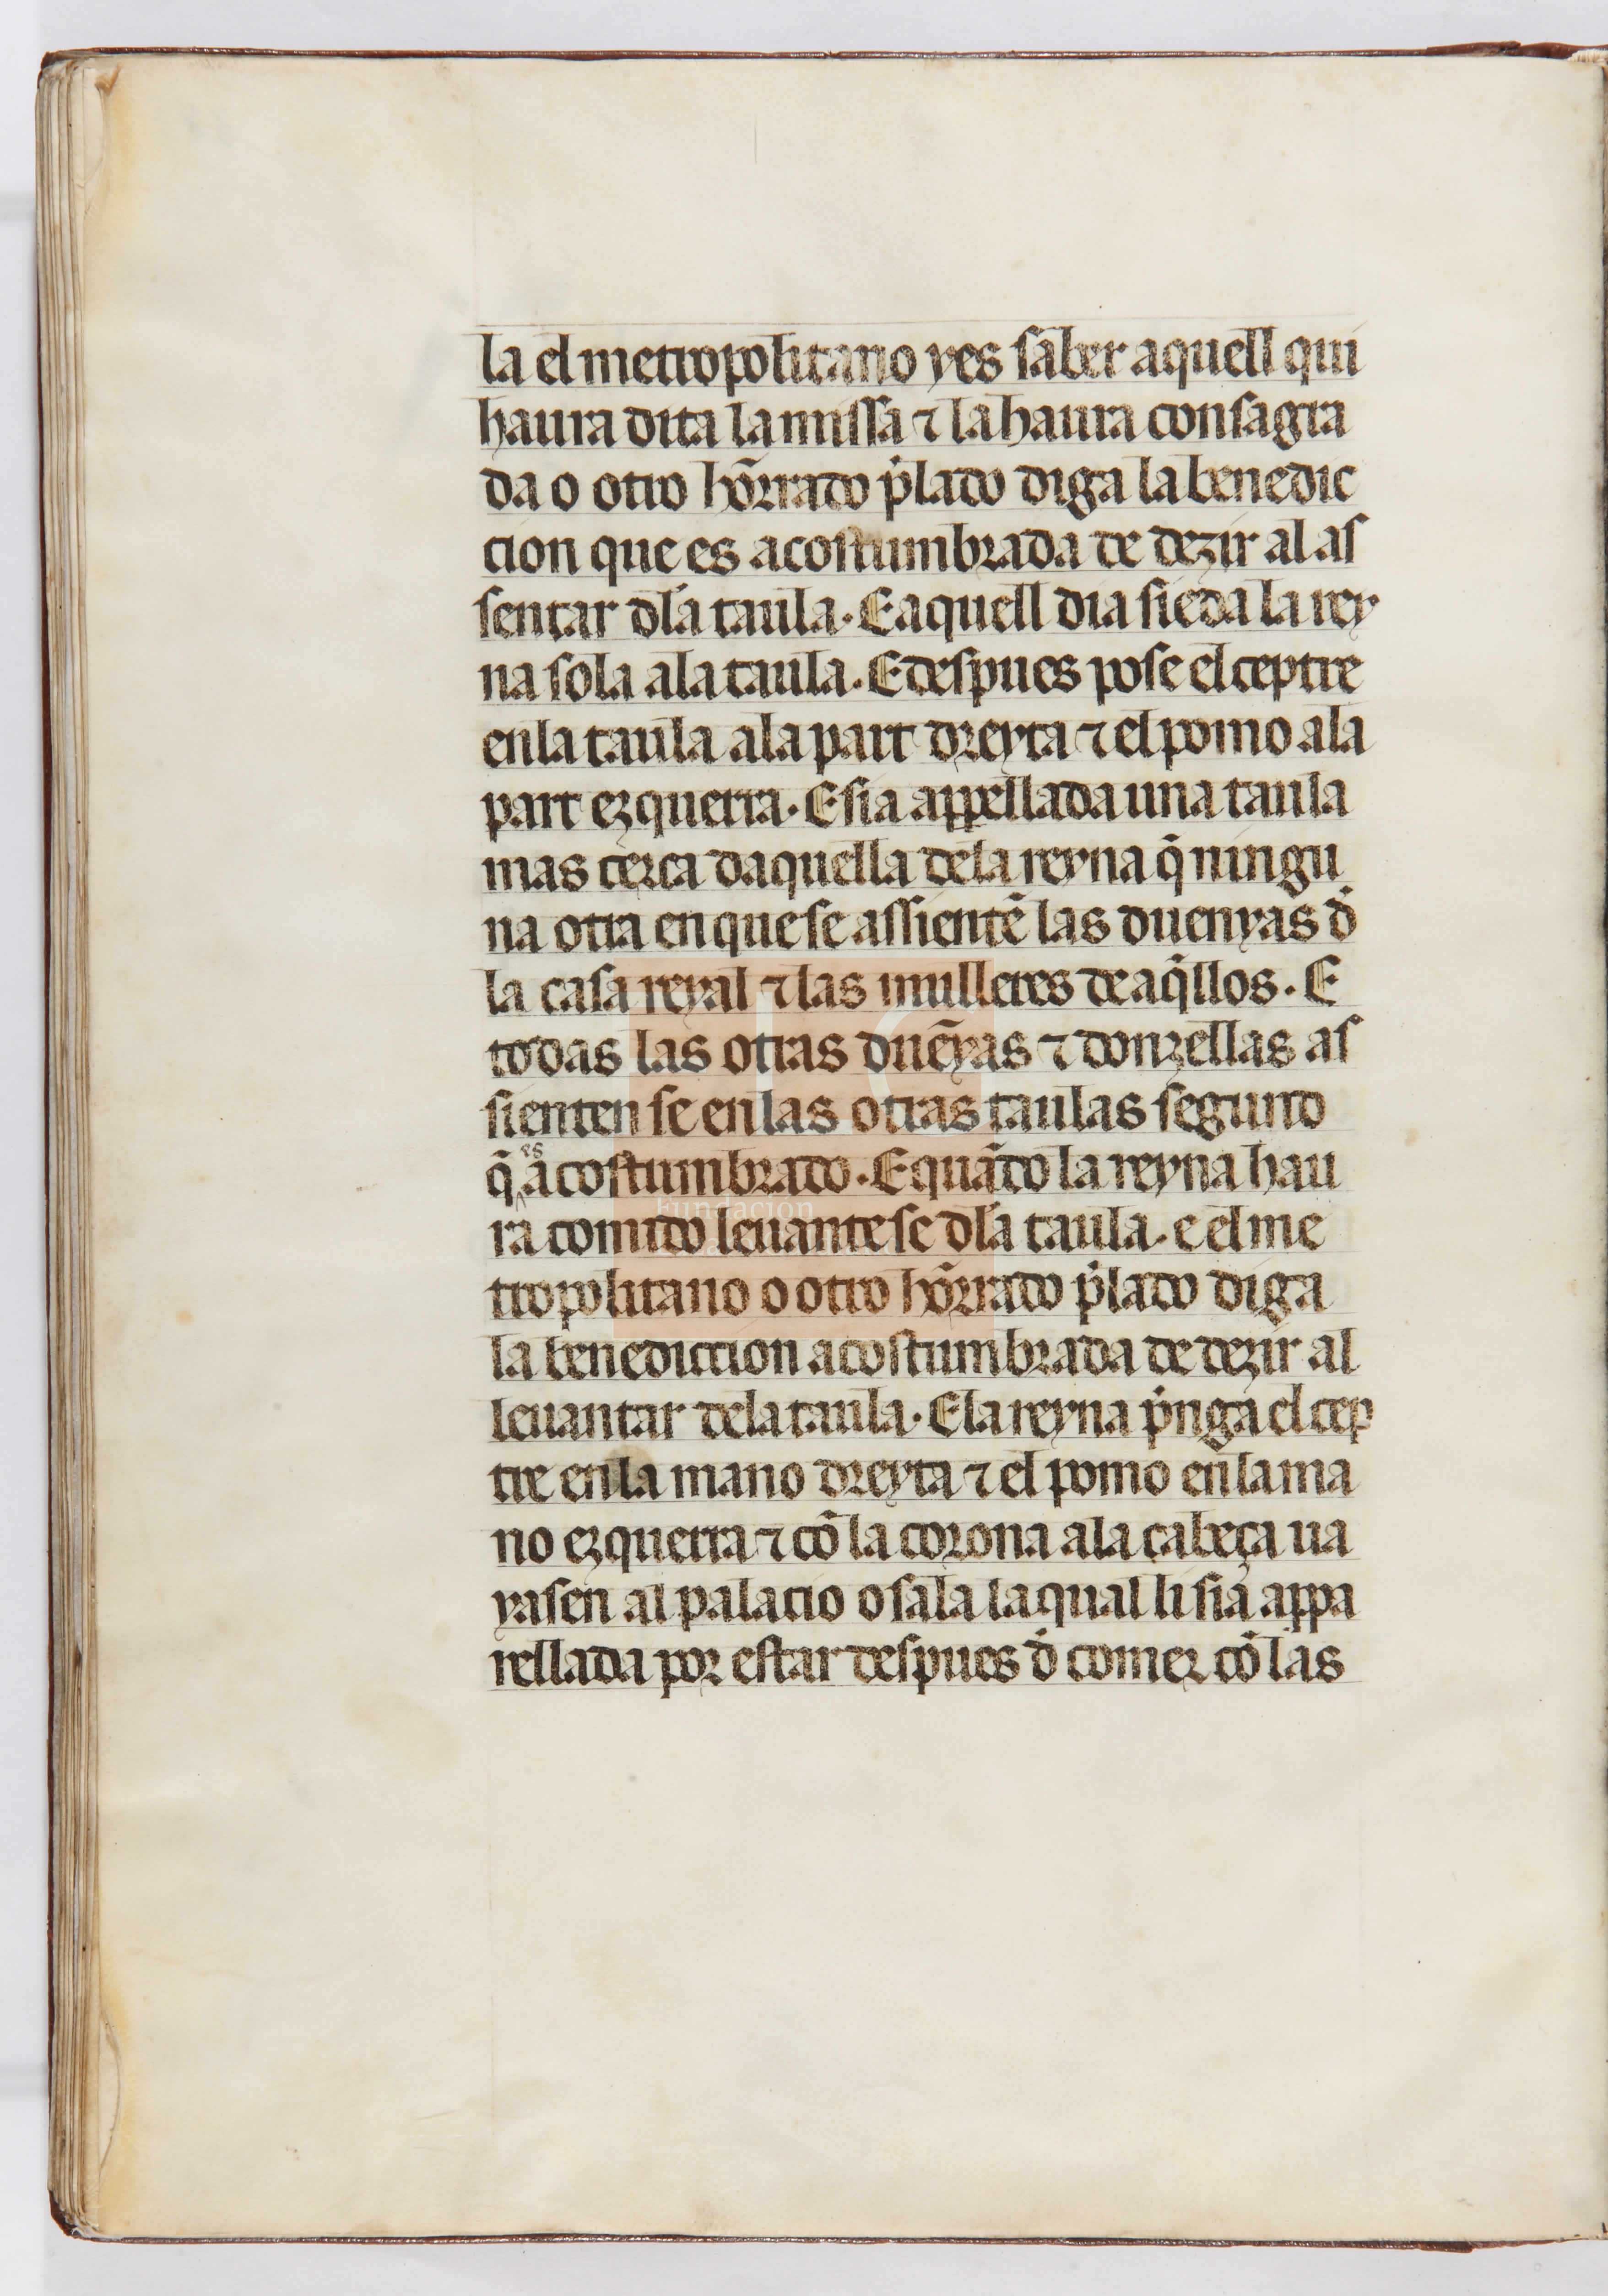 la el metropolitano yes saber aquell qui
haura dita la missa ⁊ la haura consagra
da o otro hōrrado p̓lado diga la benedic
cion que es acostumbrada de dezir al as
sentar dl̓a taula. E aquell dia sieda la rey
na sola ala taula. E despues pose el ceptre
en la taula ala part dreyta ⁊ el pomo ala
part ezquerra. E sia appellada una taula
mas cerca daquella dela reyna q̄ ningu
na otra en que se assientē las duenyas d̓
la casa reyal ⁊ las mulleres de aq̄llos. E
todas las otras duēyas ⁊ donzellas as
sienten se en las otras taulas segund
q̄ es acostumbrado. E quādo la reyna hau
ra comido leuante se dl̓a taula. e el me
tropolitano o otro hōrrado p̓lado diga
la benediccion acostumbrada de dezir al
leuantar dela taula. E la reyna p̓nga el cep
tre en la mano dreyta ⁊ el pomo en la ma
no ezquerra ⁊ cō la corona ala cabeça ua
yasen al palacio o sala la qual li sia appa
rellada por estar despues d̓ comer cō las
Fundación